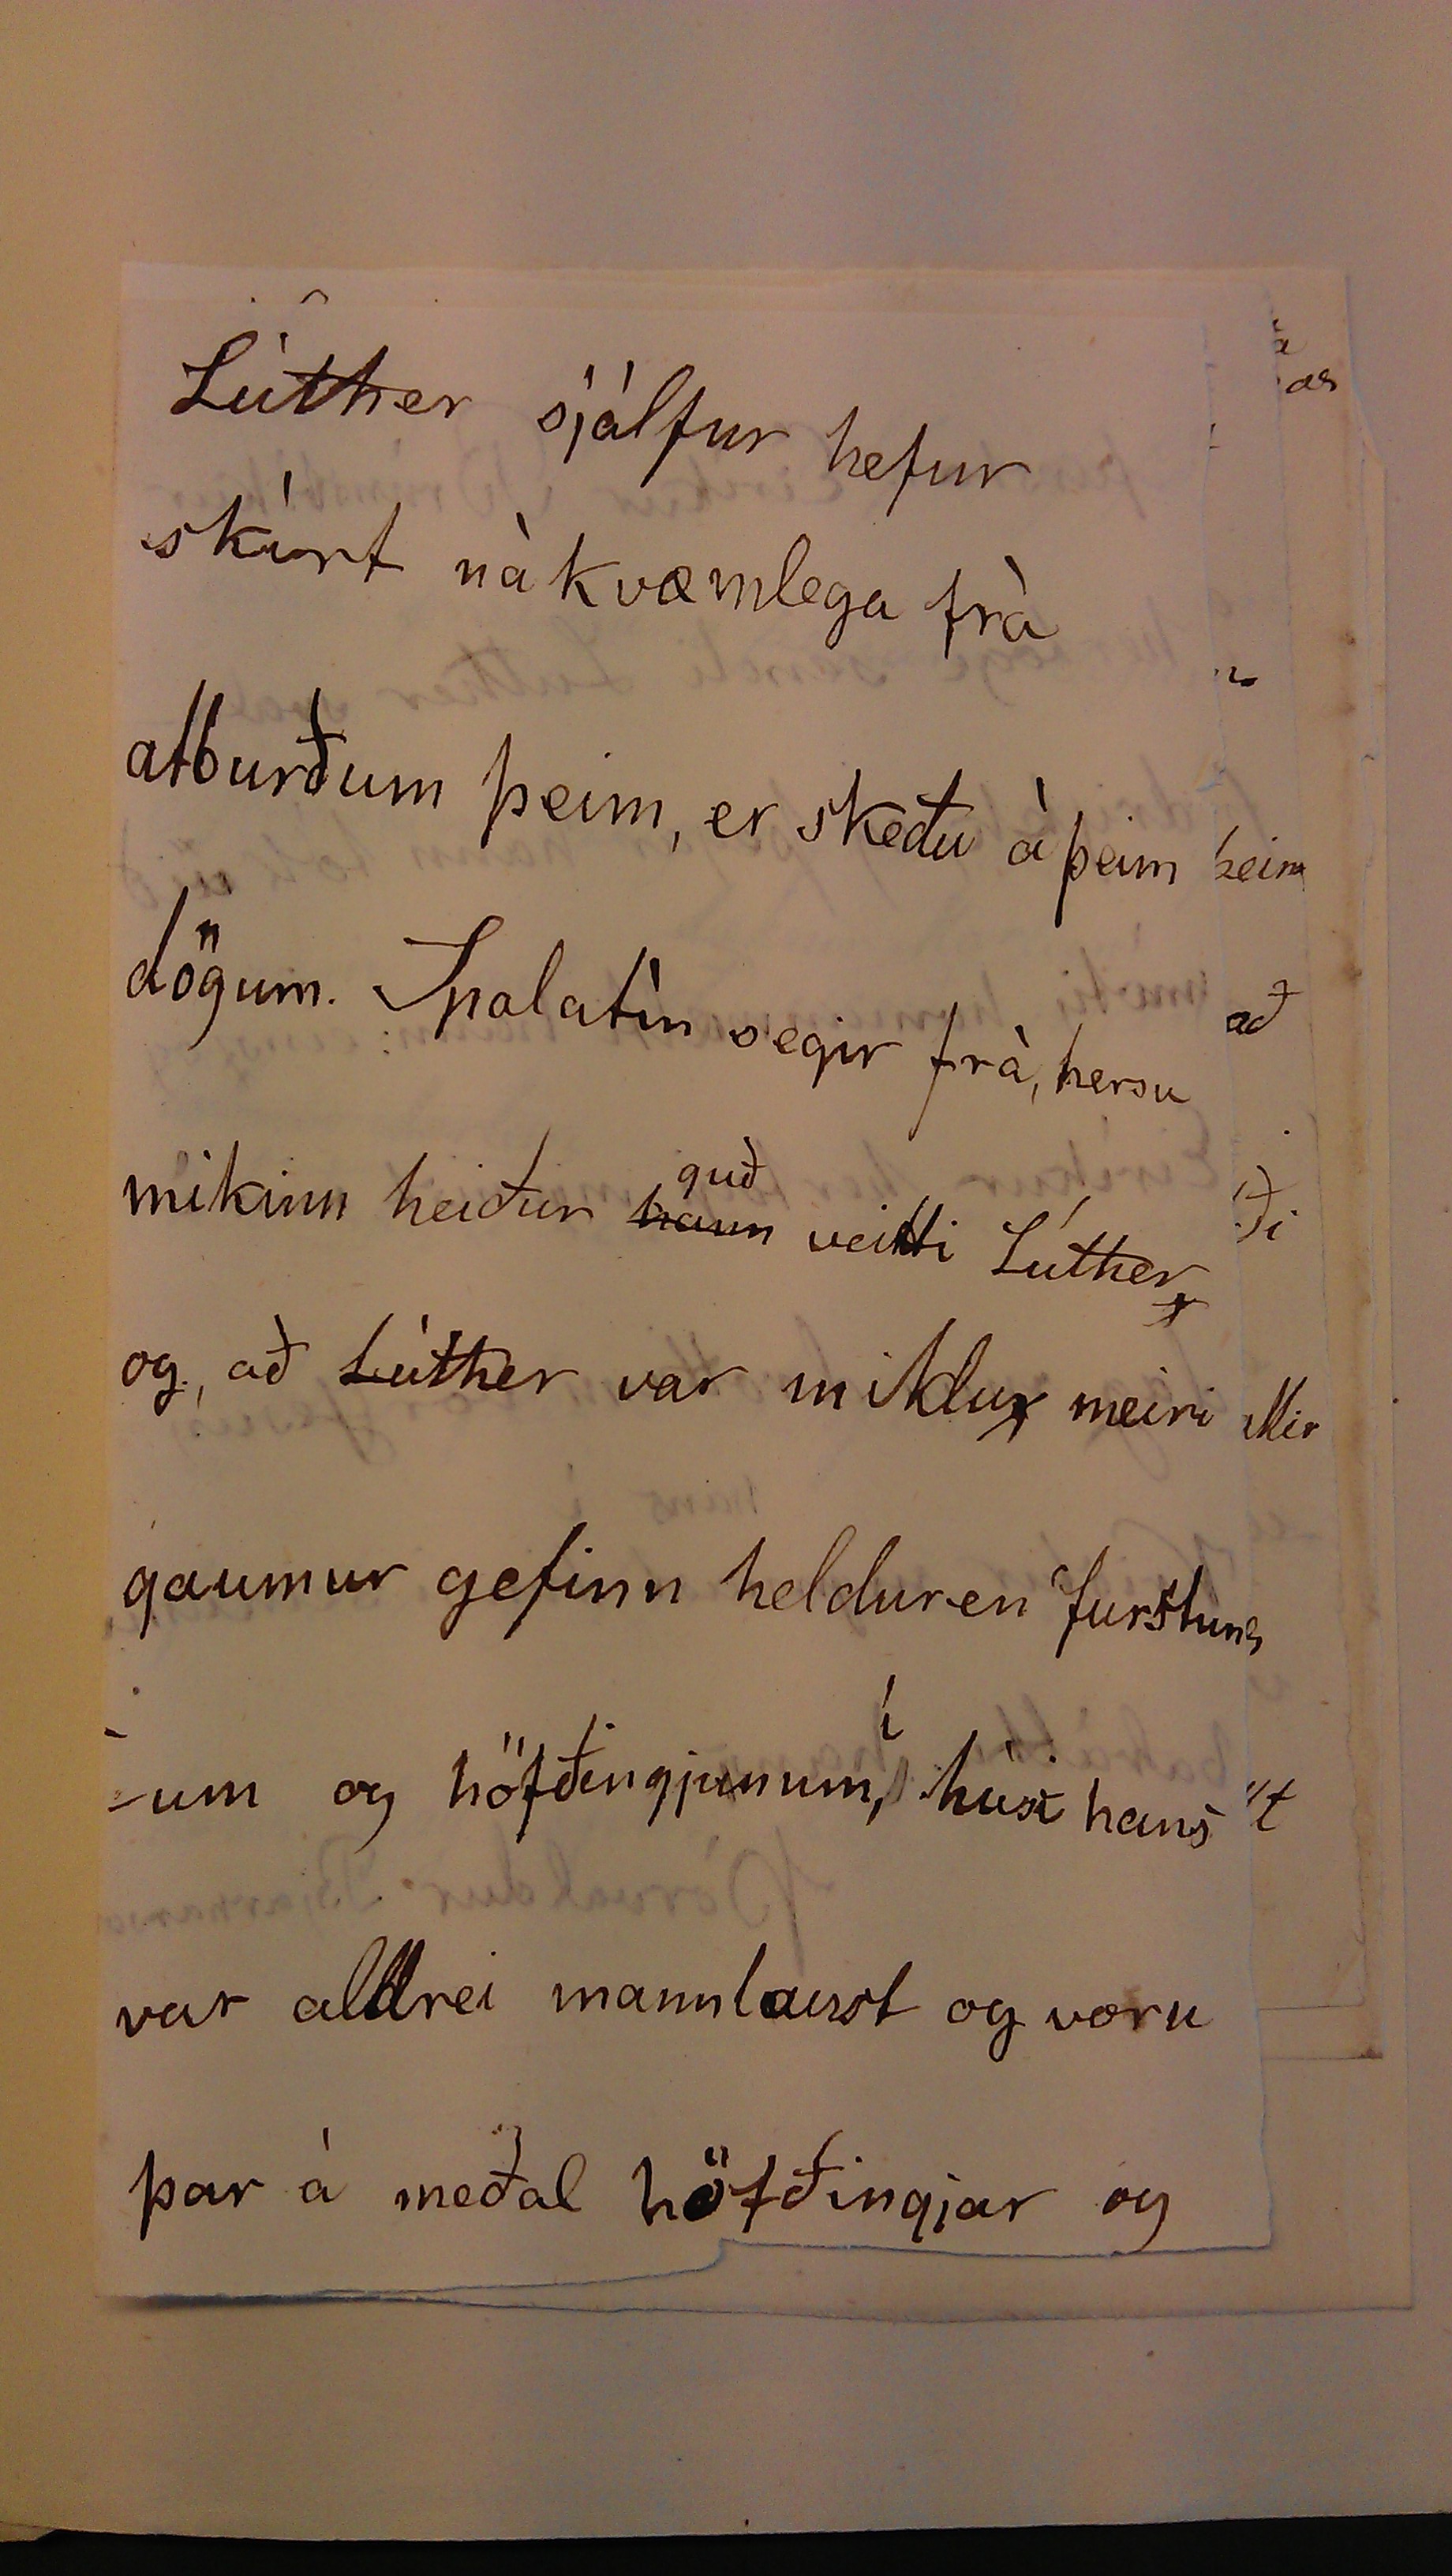 Lúther sjálfur hefur
skírt nákvæmlega frá
atburðum þeim, er skeðu á þeim
dögum. Spalatín segir frá, hersu
mikinn heiður hann guð veitti Lúther
og, að Lúther var miklu meiri
gaumur gefinn heldur en furstun
-um og höfðingjunum, í húsi hans
var alldrei mannlaust og voru
þar á meðal höfðingjar og